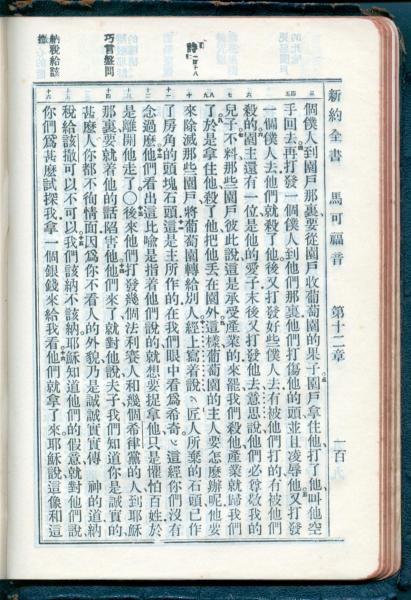 新約全書 馬可福音 第十二章 一百九
個僕人到園戶那裏要從園戶收葡萄園的果子園戶拿住他打了他叫他空
手回去再打發一個僕人到他們那裏他們打傷他的頭並且凌辱他又打發
一個僕人去他們就殺了他後又打發好些僕人去有被他們打的有被他們
殺的園主還有一位是他的愛子末後又打發他去意思說他們必尊敬我的
兒子不料那些園戶彼此說這是承受產業的來罷我們殺他產業就歸我們
了於是拿住他殺了他把他丟在園外這樣葡萄園的主人要怎麼辦呢他要
來除滅那些園戶將葡萄園轉給別人經上寫着說匠人所棄的石頭已作
了房角的頭塊石頭這是主所作的在我們眼中看為希奇這經你們沒有
念過麼他們看出這比喻是指着他們說的就想要捉拿他只是懼怕百姓於
是離開他走了〇後來他們打發幾個法利賽人和幾個希律黨的人到耶穌
那裏要就着他的話陷害他他們來了就對他說夫子我們知道你是誠實的
甚麼人你都不徇情面因為你不看人的外貌乃是誠誠實實傳 神的道納
稅給該撒可以不可以我們該納不該納耶穌知道他們的假意就對他們說
你們為甚麼試探我拿一個銀錢來給我看他們就拿了來耶穌說這像和這
詩一百十八
巧言盤問
納稅給該撒